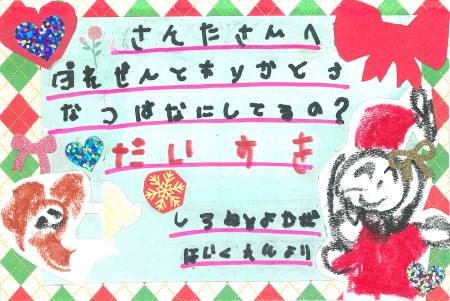 さんたさんへ
ぷれぜんとありがとう
なつはなにしてるの?
だいすき
しろねとよかぜ
ほいくえんより